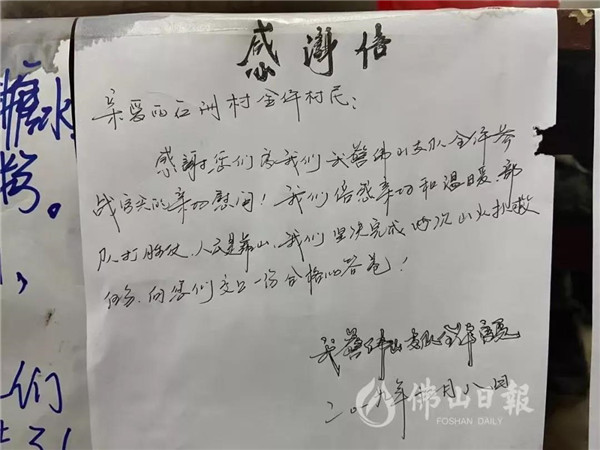 感谢信
糖水
。
亲爱的石洲村全体村民：
感谢您们为我们武警佛山支队全体参
战官兵的亲切慰问！我们倍感亲切和温暖，部
队打胜仗，人民是靠山，我们坚决完成此次山火扑救
任务，向您们交上一份合格的答卷！
们
武警佛山支队全体官兵
二〇一九年十二月八日
佛山日報
FOSHAN DAILY